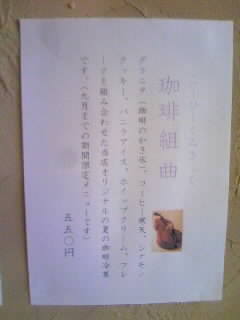 珈琲組曲
グラニテ(珈琲のかき氷)、コーヒー寒天、シナモン
クッキー、バニラアイス、ホイップクリーム、フレ
ークを組み合わせた当店オリジナルの夏の珈琲冷菓
です。(九月までの期間限定メニューです)
五五〇円